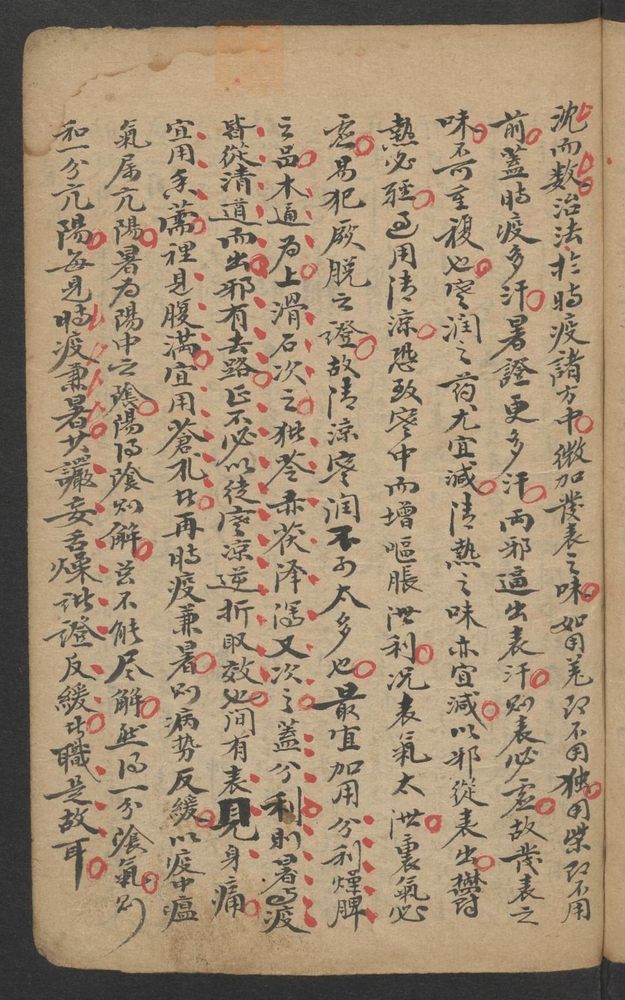 沈而数治法於時疫諸方中微加發表之味如用羌即不用独用柴即不用
前蓋時疫多汗暑證更多汗両邪逼出表汗則表必虚故發表之
味不可重複也寒润之药尤宜減清熱之味亦宜減以邪從表出欝
熱必軽过用清涼恐致寒中而增嘔脹泄利况表氣太泄裏氣必
虚易犯厥脱之證故清涼寒润不可太多也最宜加用分利燥脾
之品木通为上滑石次之猪苓赤茯泽泻又次之蓋分利則暑与疫
皆從清道而出邪有去路正不必以徒寒涼逆折取效也间有表見身痛
宜用香薷裡見腹满宜用蒼朮者再時疫兼暑則病势反緩以疫中瘟
氣属亢陽暑为陽中之陰陽得陰則解兹不能尽解然得一分陰氣則
和一分亢陽每見時疫兼暑其讝妄舌燥諸證反緩者職是故耳